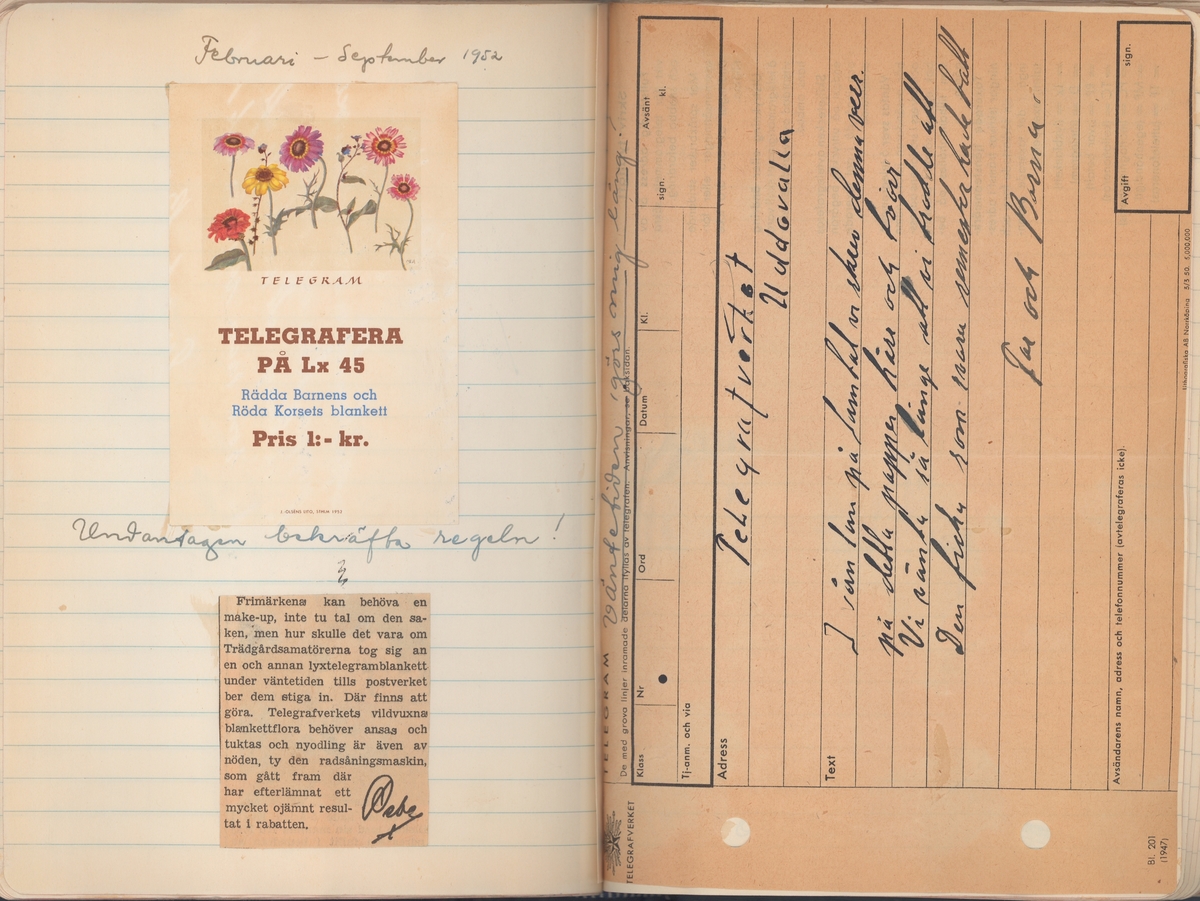 Februari – September 1952
TELEGRAM
TELEGRAFERA
PÅ Lx 45
Rädda Barnens och
Röda Korsets blankett
Pris 1:- kr.
J. OLSÉNS LITO, STHLM 1952
Undantagen bekräfta regeln!
Frimärkena kan behöva en
make-up, inte tu tal om den sa-
ken, men hur skulle det vara om
Trädgårdsamatörerna tog sig an
en och annan lyxtelegramblankett
under väntetiden tills postverket
ber dem stiga in. Där finns att
göra. Telegrafverkets vildvuxna
blankettflora behöver ansas och
tuktas och nyodling är även av
nöden, ty den radsåningsmaskin,
som gått fram där
har efterlämnat ett
mycket ojämnt resul-
tat i rabatten.
TELEGRAFVERKET
TELEGRAM Väntetiden görs mig lång!
De med grova linjer inramade delarna ifyllas av telegrafen. Anvisningar, se baksidan.
Klass Nr Ord Datum Kl. Avsänt
sign. kl.
Tj-anm. och via
Adress Telegrafverket
Uddevalla
Text
I sån tan på samtal vi skev denna veir.
på detta papper håre och tvoir
Vi vänta så länge att vi trodde att
Den ficka som varn menesk hade fatt
Far och Borna.
Avsändarens namn, adress och telefonnummer (avtelegraferas icke).
Avgift sign.
Bl. 201
(1947)
Litografiska AB Norrköping 3/5 50. 1,000,000